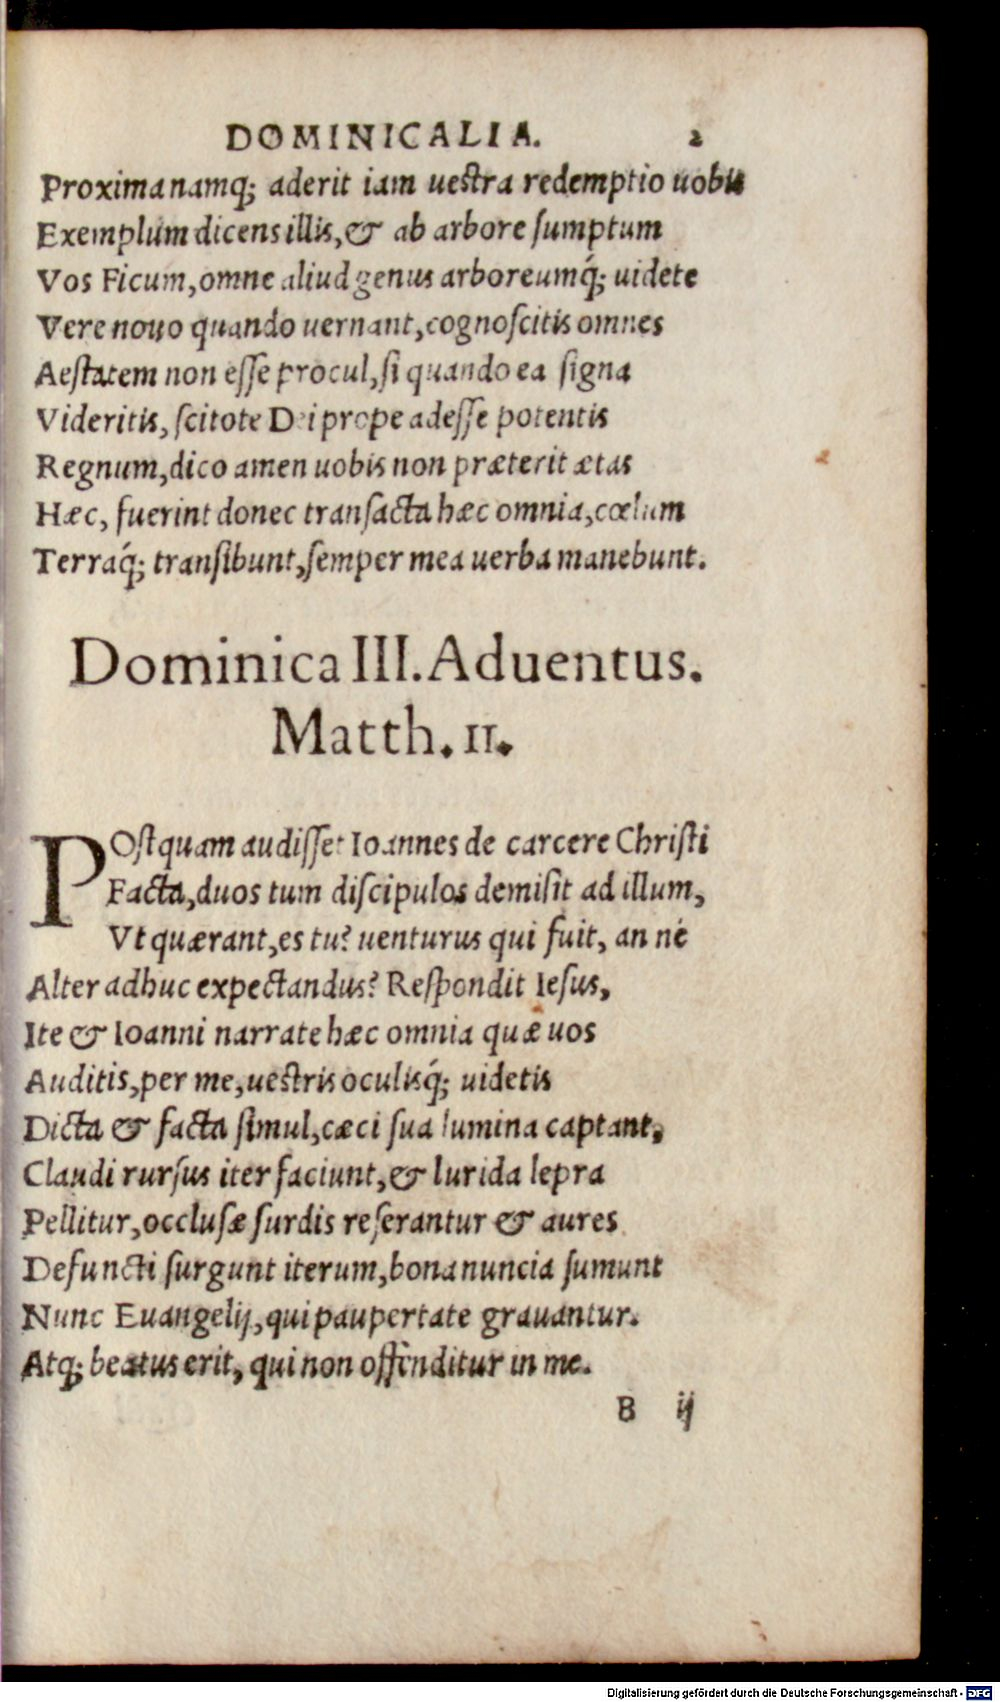 DOMINICALIA. 2
Proxima namq; aderit iam uestra redemptio uobis
Exemplum dicens illis, & ab arbore ſumptum
Vos Ficum, omne aliud genus arboreumq́; uidete
Vere nouo quando uernant, cognoſcitis omnes
Aeſtatem non eſſe procul, ſi quando ea ſigna
Videritis, ſcitote Dei prope adeſſe potentis
Regnum, dico amen uobis non præterit ætas
Hæc, fuerint donec tranſacta hæc omnia, cœlum
Terraq́; tranſibunt, ſemper mea uerba manebunt.
Dominica III. Aduentus.
Matth. 11.
POſtquam audiſſet Ioannes de carcere Chriſti
Facta, duos tum diſcipulos demiſit ad illum,
Vt quærant, es tu? uenturus qui fuit, an né
Alter adhuc expectandus? Reſpondit Ieſus,
Ite & Ioanni narrate hæc omnia quæ uos
Auditis, per me, ueſtris oculisq́; uidetis
Dicta & facta ſimul, cæci ſua lumina captant,
Claudi rurſus iter faciunt, & lurida lepra
Pellitur, occluſæ ſurdis reſerantur & aures
Defuncti ſurgunt iterum, bona nuncia ſumunt
Nunc Euangelij, qui paupertate grauantur.
Atq; beatus erit, qui non offenditur in me.
B ij
Digitalisierung gefördert durch die Deutsche Forschungsgemeinschaft - DFG